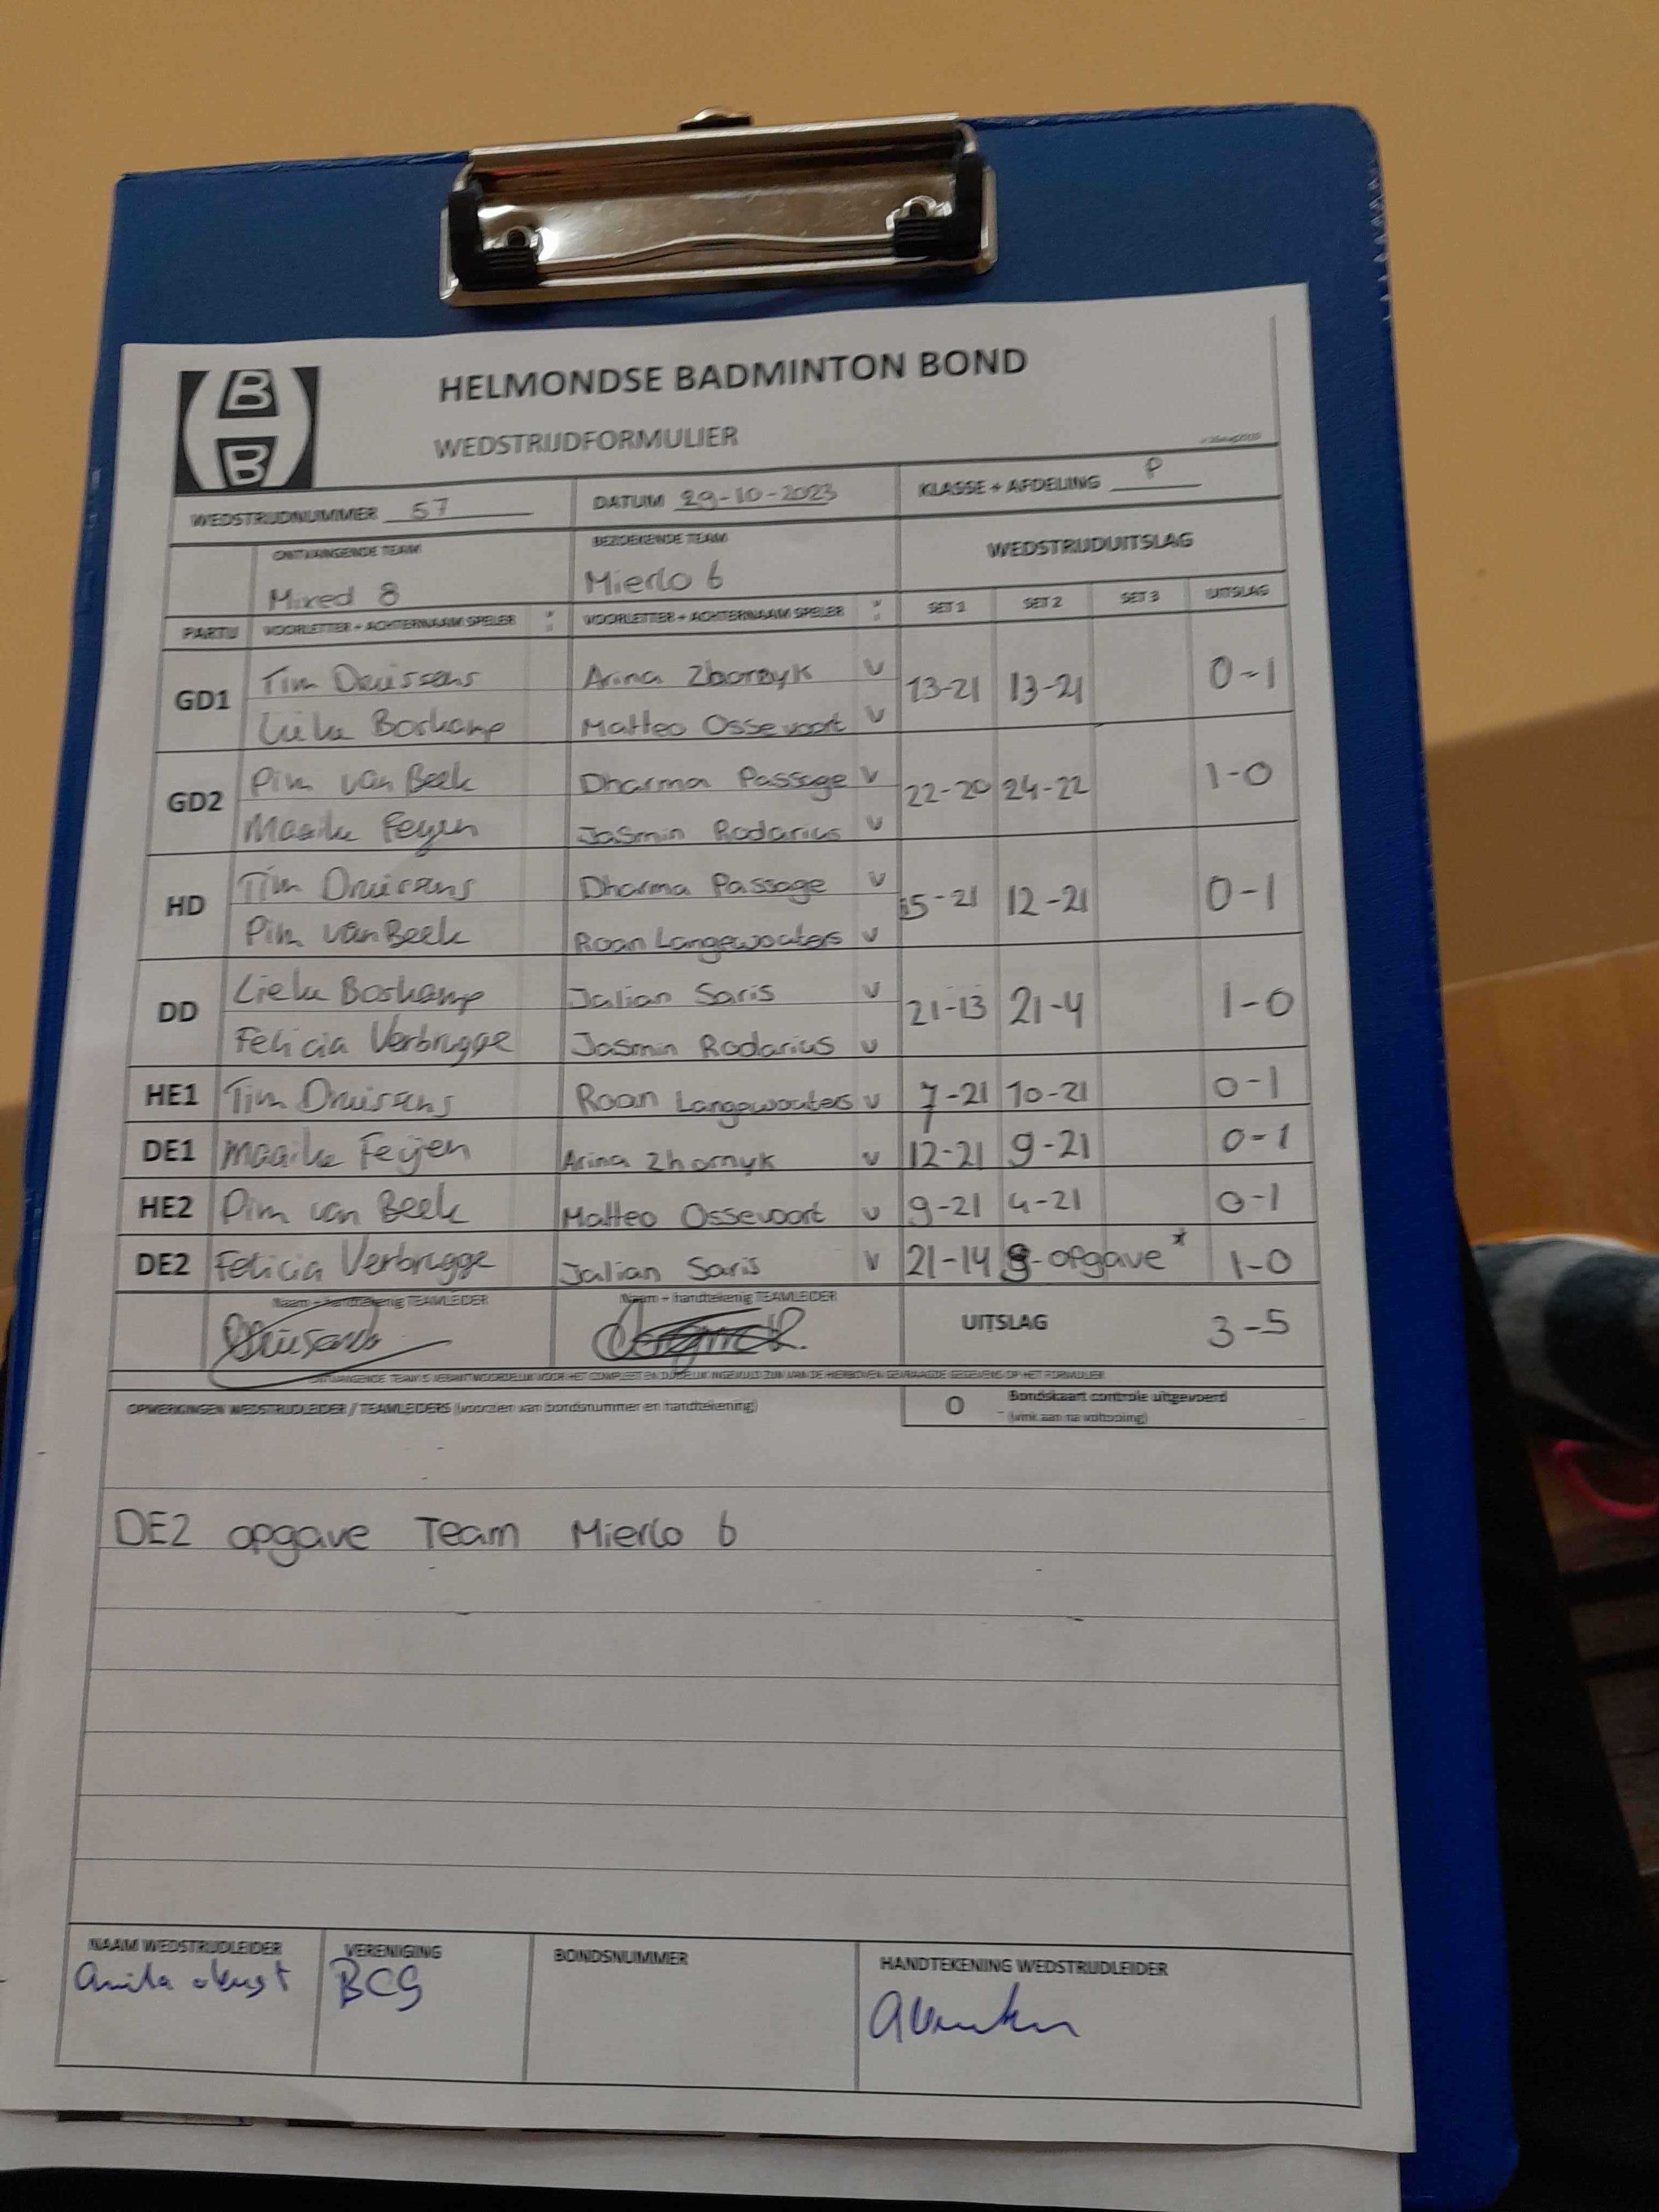 B
B
HELMONDSE BADMINTON BOND
WEDSTRIJDFORMULIER
WEDSTRIJDNUMMER 57 DATUM 29-10-2023 KLASSE + AFDELING P
ONTVANGENDE TEAM BEZOEKENDE TEAM WEDSTRIJDUITSLAG
Mixed 8 Mierlo 6
PARTIJ VOORLETTER + ACHTERNAAM SPELER VOORLETTER + ACHTERNAAM SPELER SET 1 SET 2 SET 3 UITSLAG
GD1 Tim Druissens Arina Zhornyk v 13-21 13-21 0-1
Lieke Boskamp Matteo Ossevoort v
GD2 Pim van Beek Dharma Passage v 22-20 24-22 1-0
Maaike Feijen Jasmin Rodarius v
HD Tim Druissens Dharma Passage v 15-21 12-21 0-1
Pim van Beek Roan Langewouters v
DD Lieke Boskamp Jalian Saris v 21-13 21-4 1-0
Felicia Verbrugge Jasmin Rodarius v
HE1 Tim Druissens Roan Langewouters v 7-21 10-21 0-1
DE1 Maaike Feijen Arina Zhornyk v 12-21 9-21 0-1
HE2 Pim van Beek Matteo Ossevoort v 9-21 4-21 0-1
DE2 Felicia Verbrugge Jalian Saris v 21-14 9-opgave * 1-0
Naam + handtekenig TEAMLEIDER Naam + handtekenig TEAMLEIDER UITSLAG 3-5
ONTVANGENDE TEAM IS VERANTWOORDELIJK VOOR HET COMPLEET EN DUIDELIJK INGEVULD ZIJN VAN DE HIERBOVEN GEVRAAGDE GEGEVENS OP HET FORMULIER
OPMERKINGEN WEDSTRIJDLEIDER / TEAMLEIDERS (voorzien van bondsnummer en handtekening) O Bondskaart controle uitgevoerd
(vink aan na voltooiing)
DE2 opgave Team Mierlo 6
NAAM WEDSTRIJDLEIDER VERENIGING BONDSNUMMER HANDTEKENING WEDSTRIJDLEIDER
Anita BCG